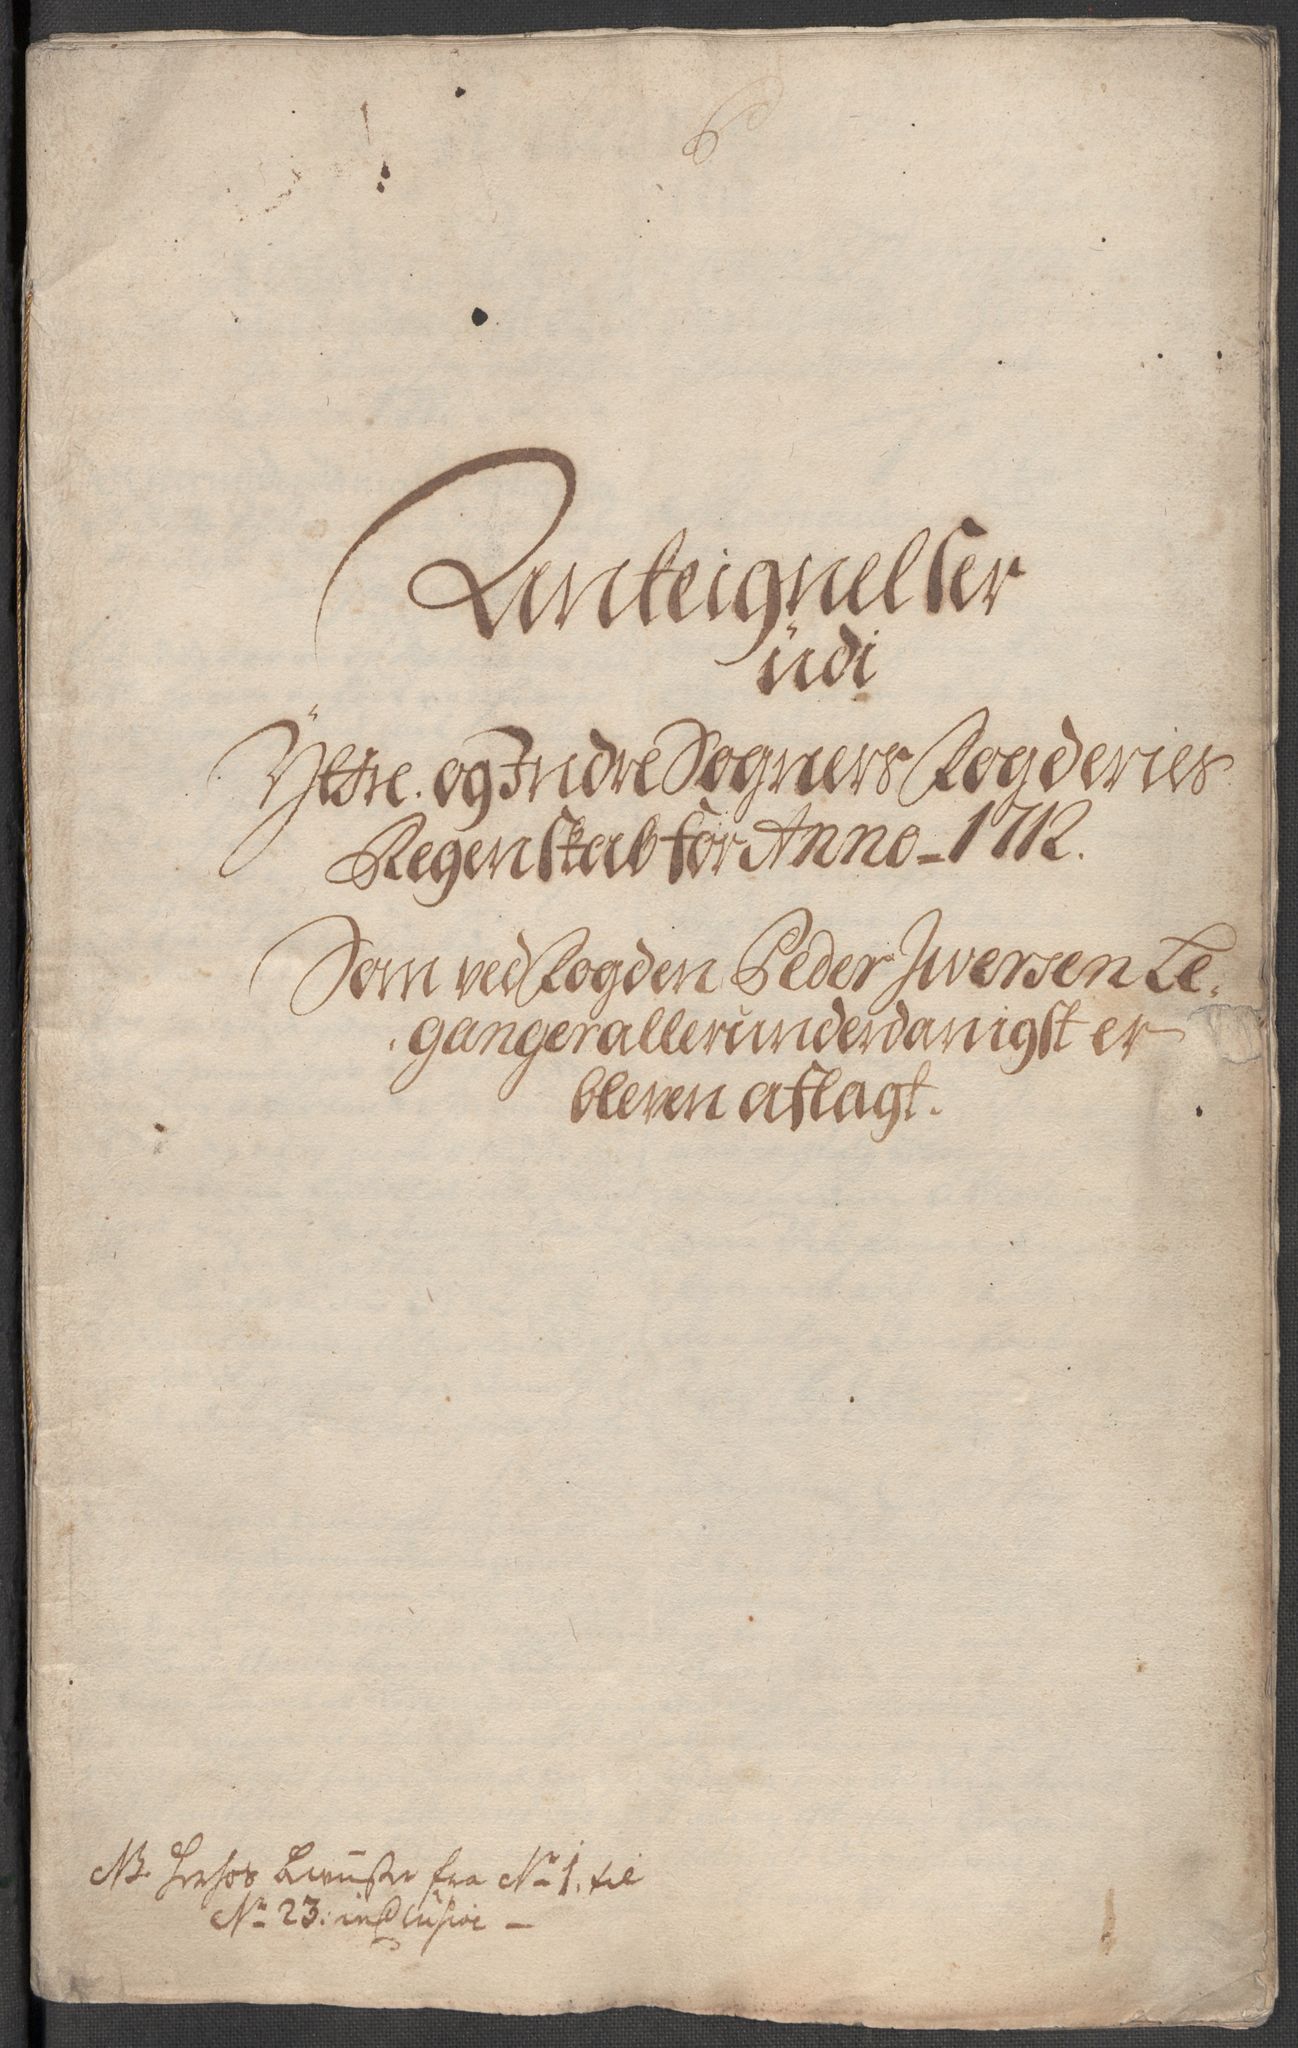 6
Anteignelser
üdi
Ÿttre. og Indre Sogners Fogderies
Regenskab for Anno 1712.
Som ved Fogden Peder Iversen Le,
ganger allerunderdanigst er
bleven aflagt.
NB. Herhos Beviiser fra No 1. til
No 23: inclusive